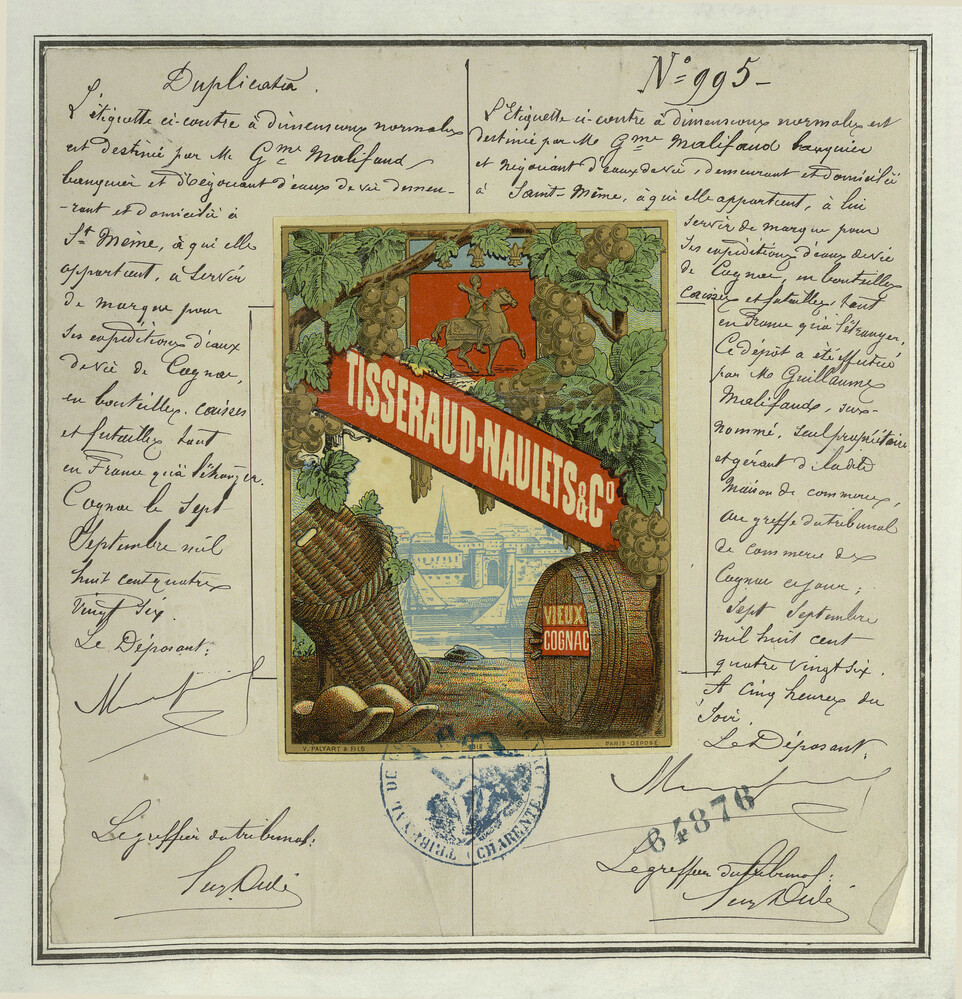 Duplicata.
L'étiquette ci-contre à dimensions normales
est destinée par Mr Gme Malifaud
banquier et négociant d'eaux de vie demeu-
-rant et domicilié à
St Même, à qui elle
appartient, à servir
de marque pour
ses expéditions d'eaux
de vie de Cognac,
en bouteilles, caisses
et futailles tant
en France qu'à l'étranger.
Cognac le sept
Septembre mil
huit cent quatre
vingt six.
Le Déposant:
Le greffier du tribunal:
N° 995-
L'Etiquette ci-contre à dimensions normales est
destinée par Mr Gme Malifaud banquier
et négociant d'eaux de vie, demeurant et domicilié
à Saint-Même, à qui elle appartient, à lui
servir de marque pour
ses expéditions d'eaux de vie
de Cognac, en bouteilles
caisses et futailles, tant
en France qu'à l'étranger.
Ce dépôt a été effectué
par Mr Guillaume
Malifaud, sus-
nommé, seul propriétaire
et gérant de la dite
maison de commerce,
au greffe du tribunal
de commerce de
Cognac ce jour;
sept Septembre
mil huit cent
quatre vingt six.
A cinq heures du
soir.
Le Déposant:
64876
Le greffier du tribunal:
TISSERAUD-NAULETS & Co
VIEUX
COGNAC
V. PALYART & FILS
PARIS-DEPOSÉ
TRIBUNAL DE
CHARENTE